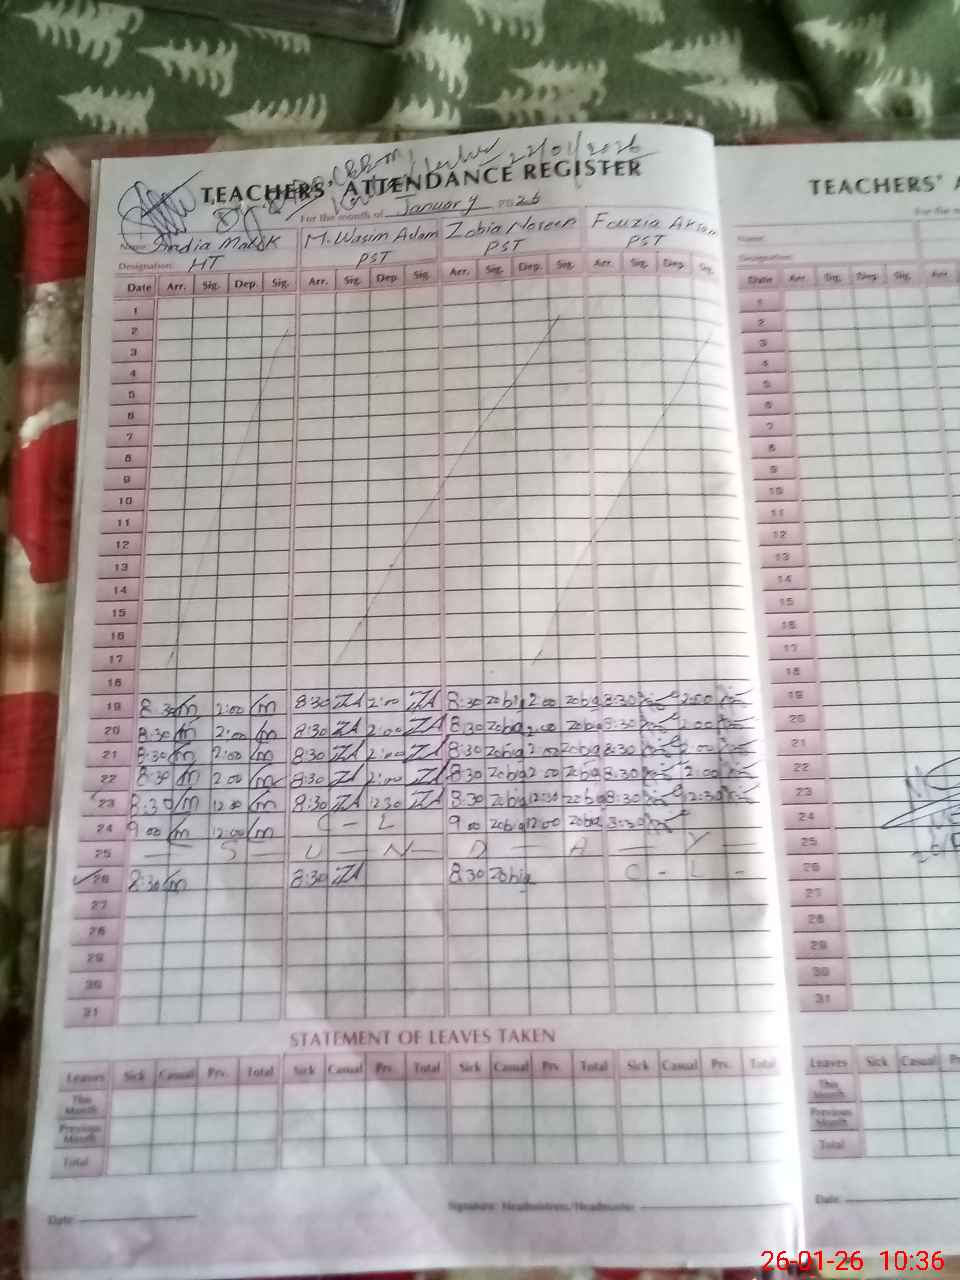 22/01/2026
TEACHERS' ATTENDANCE REGISTER
For the month of January 2026
Name: M. Wasim Aslam Zobia Noreen Fouzia
Designation: HT PST PST PST
Date Arr. Sig. Dep. Sig. Arr. Sig. Dep. Sig. Arr. Sig. Dep. Sig. Arr. Sig. Dep. Sig.
1
2
3
4
5
6
7
8
9
10
11
12
13
14
15
16
17
18
19 8:30 2:00 8:30 2:00 8:30 Zobia 2:00 Zobia 8:30 2:00
20 8:30 2:00 8:30 2:00 8:30 Zobia 2:00 Zobia 8:30 2:00
21 8:30 2:00 8:30 2:00 8:30 Zobia 2:00 Zobia 8:30 2:00
22 8:30 2:00 8:30 2:00 8:30 Zobia 2:00 Zobia 8:30 2:00
23 8:30 12:30 8:30 12:30 8:30 Zobia 12:30 Zobia 8:30 12:30
24 9:00 12:00 C - L 9:00 Zobia 12:00 Zobia 8:30
25 — S — U — N — D — A — Y —
26 8:30 8:30 8:30 Zobia C - L -
27
28
29
30
31
STATEMENT OF LEAVES TAKEN
Leaves Sick Casual Prv. Total Sick Casual Prv. Total Sick Casual Prv. Total Sick Casual Prv. Total
This Month
Previous Month
Total
Date: Signature: Headmistress/Headmaster
TEACHERS' A
For the m
Name:
Designation:
Date Arr. Sig. Dep. Sig. Arr.
1
2
3
4
5
6
7
8
9
10
11
12
13
14
15
16
17
18
19
20
21
22
23
24
25
26
27
28
29
30
31
Leaves Sick Casual
This Month
Previous Month
Total
Date:
26-01-26 10:36